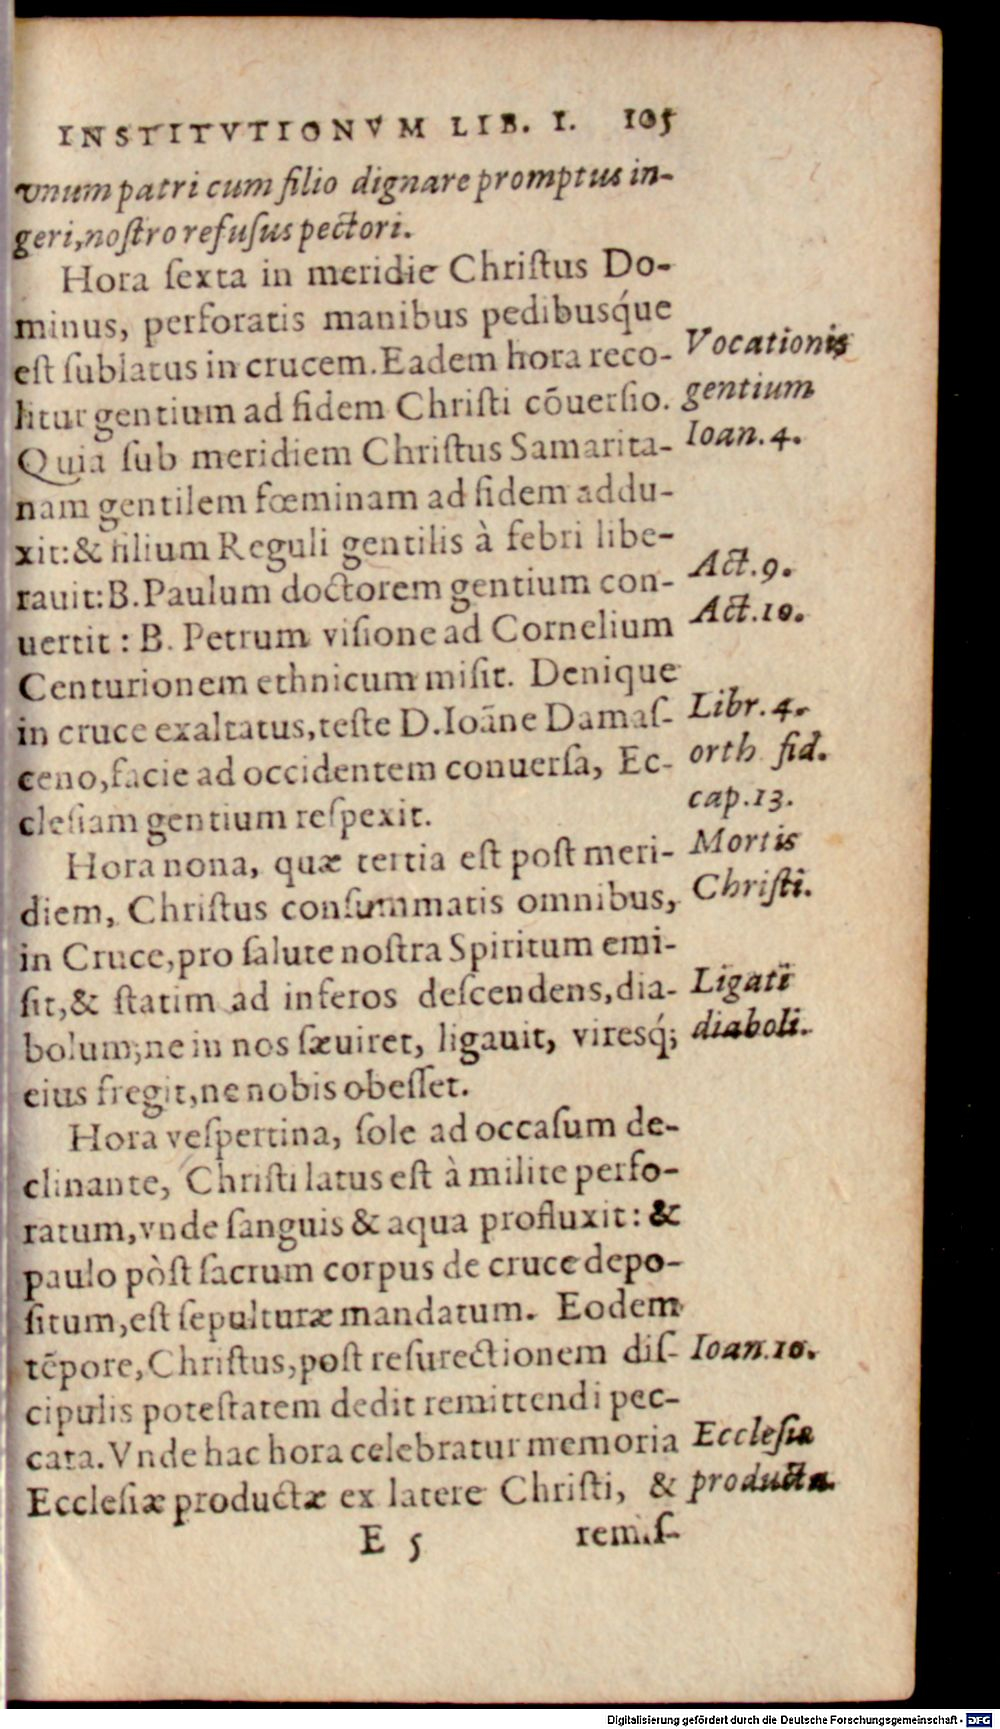 INSTITVTIONVM LIB. I. 105
vnum patri cum filio dignare promptus in-
geri, noſtro refuſus pectori.
Hora ſexta in meridie Chriſtus Do-
minus, perforatis manibus pedibusq́ue
eſt ſublatus in crucem. Eadem hora reco-
litur gentium ad fidem Chriſti cōuerſio.
Quia ſub meridiem Chriſtus Samarita-
nam gentilem fœminam ad fidem addu-
xit: & filium Reguli gentilis à febri libe-
rauit: B. Paulum doctorem gentium con-
uertit : B. Petrum viſione ad Cornelium
Centurionem ethnicum miſit. Denique
in cruce exaltatus, teſte D. Ioāne Damaſ-
ceno, facie ad occidentem conuerſa, Ec-
cleſiam gentium reſpexit.
Hora nona, quæ tertia eſt poſt meri-
diem, Chriſtus conſummatis omnibus,
in Cruce, pro ſalute noſtra Spiritum emi-
ſit, & ſtatim ad inferos deſcendens, dia-
bolum, ne in nos ſæuiret, ligauit, viresq́;
eius fregit, ne nobis obeſſet.
Hora veſpertina, ſole ad occaſum de-
clinante, Chriſti latus eſt à milite perfo-
ratum, vnde ſanguis & aqua profluxit: &
paulo pòſt ſacrum corpus de cruce depo-
ſitum, eſt ſepulturæ mandatum. Eodem
tēpore, Chriſtus, poſt reſurectionem diſ-
cipulis poteſtatem dedit remittendi pec-
cata. Vnde hac hora celebratur memoria
Eccleſiæ productæ ex latere Chriſti, &
E 5 remiſ-
Vocationis
gentium
Ioan. 4.
Act. 9.
Act. 10.
Libr. 4.
orth fid.
cap. 13.
Mortis
Chriſti.
Ligati
diaboli.
Ioan. 10.
Eccleſia
producta.
Digitalisierung gefördert durch die Deutsche Forschungsgemeinschaft - DFG